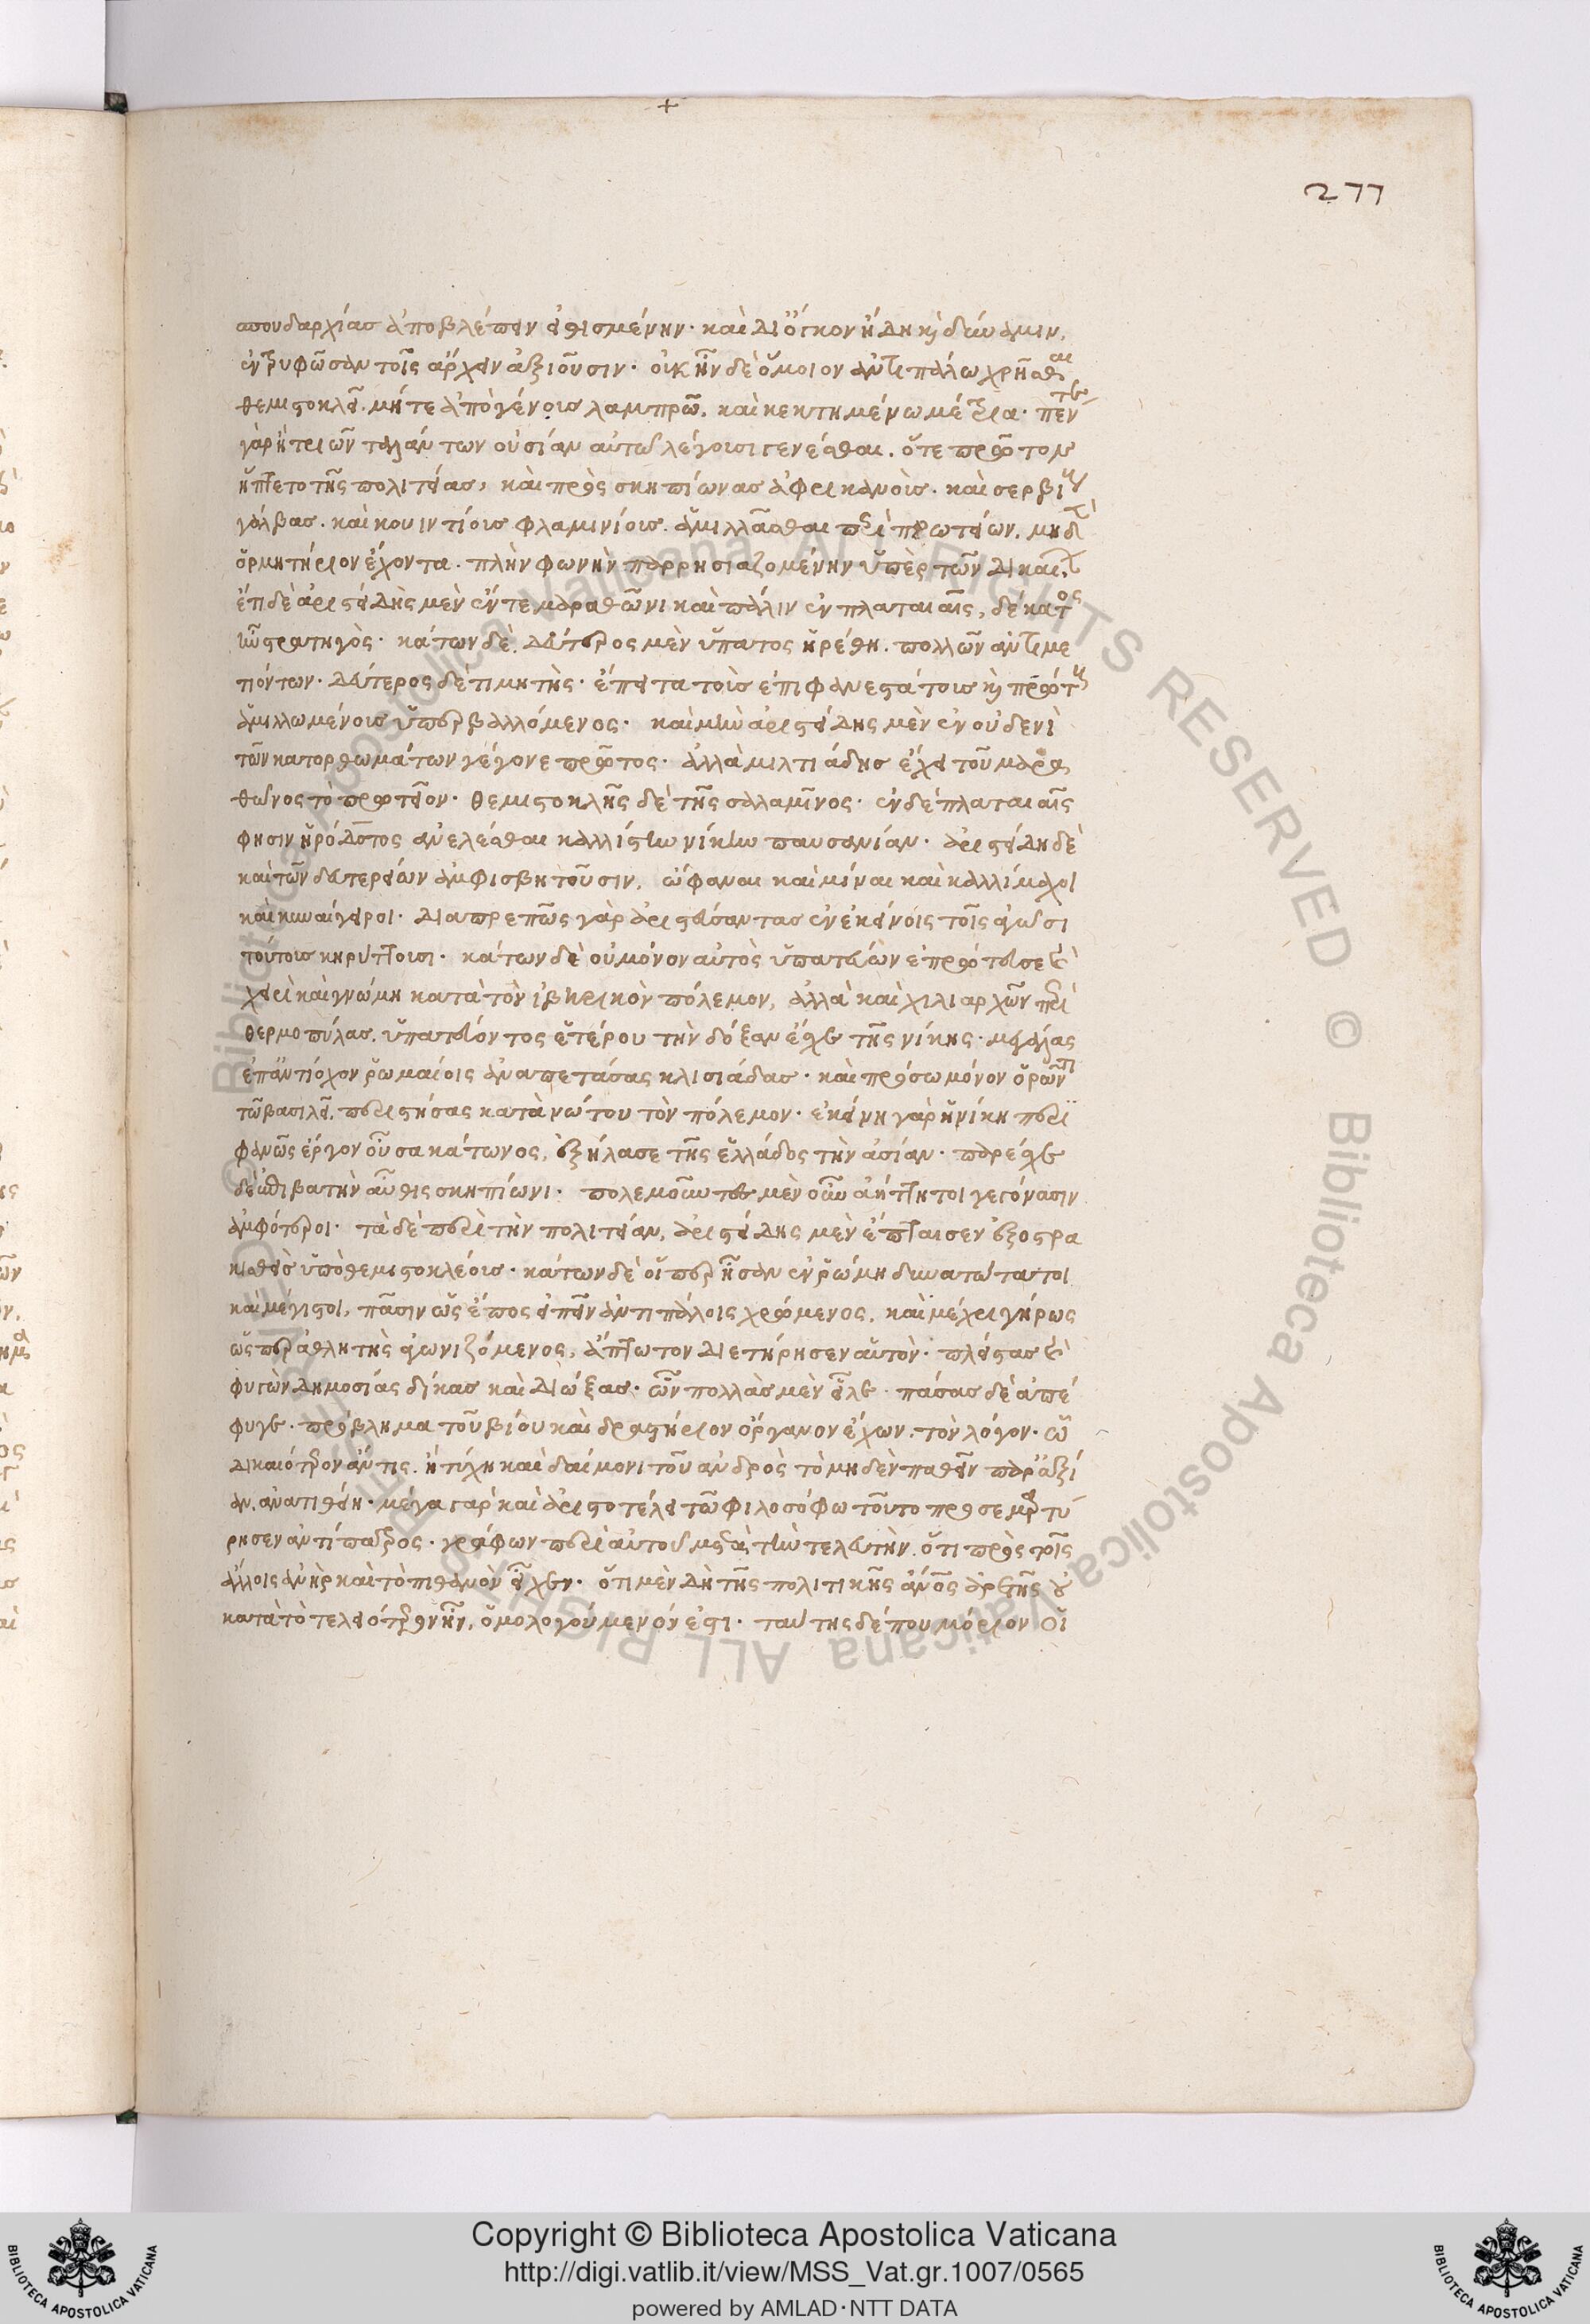 277
σπουδαρχίας ἀποβλέπειν εἰθισμένην· καὶ δι' ὄγκον ἤδη καὶ δύναμιν,
ἐντρυφῶσαν τοῖς ἄρχειν ἀξιοῦσιν· οὐκ ἦν δὲ ὅμοιον ἀντιπάλω χρῆσθαι
θεμιστοκλεῖ. μήτε ἀπὸ γένους λαμπρῶ, καὶ κεκτημένω μέτρια· πέντε
γὰρ ἢ τριῶν ταλάντων οὐσίαν αὐτῶ λέγουσι γενέσθαι, ὅτε πρῶτον
ἥπτετο τῆς πολιτείας, καὶ πρὸς σκηπίωνας ἀφρικανοὺς· καὶ σερβίους
γάλβας. καὶ κουιντίους φλαμινίους. ἁμιλλᾶσθαι περὶ πρωτείων, μηδὲν
ὁρμητήριον ἔχοντα. πλὴν φωνὴν παρρησιαζομένην ὑπὲρ τῶν δικαίων.
ἔτι δὲ ἀριστείδης μὲν ἔν τε μαραθῶνι καὶ πάλιν ἐν πλαταιαῖς, δέκατος
ἦν στρατηγός· κάτων δὲ δεύτερος μὲν ὕπατος ἡρέθη. πολλῶν ἀντιμε
τιόντων· δεύτερος δὲ τιμητής· ἑπτὰ τοὺς ἐπιφανεστάτους καὶ πρώτους
ἁμιλλωμένους ὑπερβαλλόμενος· καὶ μὴν ἀριστείδης μὲν ἐν οὐδενὶ
τῶν κατορθωμάτων γέγονε πρῶτος· ἀλλὰ μιλτιάδης ἔχει τοῦ μαρα
θῶνος τὸ πρωτεῖον· θεμιστοκλῆς δὲ τῆς σαλαμῖνος· ἐν δὲ πλαταιαῖς
φησὶν ἡρόδοτος ἀνελέσθαι καλλίστην νίκην παυσανίαν· ἀριστείδη δὲ
καὶ τῶν δευτερείων ἀμφισβητοῦσιν, σώφαναι καὶ μίναι καὶ καλλίμαχοι
καὶ κυναίγειροι· διαπρεπῶς γὰρ ἀριστεύσαντας ἐν ἐκείνοις τοῖς ἀγῶσι
τούτους κηρύττουσι· κάτων δὲ οὐ μόνον αὐτὸς ὑπατεύων ἐπρώτευσε καὶ
χειρὶ καὶ γνώμη κατὰ τὸν ἰβηρικὸν πόλεμον, ἀλλὰ καὶ χιλιαρχῶν περὶ
θερμοπύλας, ὑπατεύοντος ἑτέρου τὴν δόξαν ἔσχε τῆς νίκης· μεγάλας
ἐπ' ἀντίοχον ῥωμαίοις ἀναπετάσας κλισιάδας· καὶ πρόσω μόνον ὁρῶντι
τῶ βασιλεῖ, περιστήσας κατὰ νώτου τὸν πόλεμον· ἐκείνη γὰρ ἡ νίκη περι
φανῶς ἔργον οὖσα κάτωνος, ἐξήλασε τῆς ἑλλάδος τὴν ἀσίαν· παρέσχε
δὲ ἐπιβατὴν αὖθις σκηπίωνι· πολεμοῦντες μὲν οὖν ἀήττητοι γεγόνασιν
ἀμφότεροι· τὰ δὲ περὶ τὴν πολιτείαν, ἀριστείδης μὲν ἔπταισεν ἐξοστρα
κισθεὶς ὑπὸ θεμιστοκλέους· κάτων δὲ οἵπερ ἦσαν ἐν ῥώμη δυνατώτατοι
καὶ μέγιστοι, πᾶσιν ὡς ἔπος εἰπεῖν ἀντιπάλοις χρώμενος, καὶ μέχρι γήρως
ὥσπερ ἀθλητὴς ἀγωνιζόμενος, ἄπτωτον διετήρησεν αὑτόν· πλείστας καὶ
φυγὼν δημοσίας δίκας καὶ διώξας· ὧν πολλὰς μὲν εἷλε· πάσας δὲ ἀπέ
φυγε· πρόβλημα τοῦ βίου καὶ δραστήριον ὄργανον ἔχων, τὸν λόγον· ὧ
δικαιότερον ἄν τις, ἢ τύχη καὶ δαίμονι τοῦ ἀνδρὸς τὸ μηδὲν παθεῖν παρ' ἀξί
αν, ἀνατιθείη· μέγα γὰρ καὶ ἀριστοτέλει τῶ φιλοσόφω τοῦτο προσεμαρτύ
ρησεν ἀντίπατρος· γράφων περὶ αὐτοῦ μετὰ τὴν τελευτὴν, ὅτι πρὸς τοῖς
ἄλλοις ἀνὴρ καὶ τὸ πιθανὸν εἶχεν· ὅτι μὲν δὴ τῆς πολιτικῆς ἄνθρωπος ἀρετῆς οὐ
κατὰ τὸ τελειότερον ἦν, ὁμολογούμενόν ἐστι· ταύτης δέ που μόριον οἱ
© Biblioteca Apostolica Vaticana ALL RIGHTS RESERVED © Biblioteca Apostolica Vaticana ALL RIGHTS RESERVED
Copyright © Biblioteca Apostolica Vaticana
http://digi.vatlib.it/view/MSS_Vat.gr.1007/0565
powered by AMLAD·NTT DATA
BIBLIOTECA APOSTOLICA VATICANA
BIBLIOTECA APOSTOLICA VATICANA